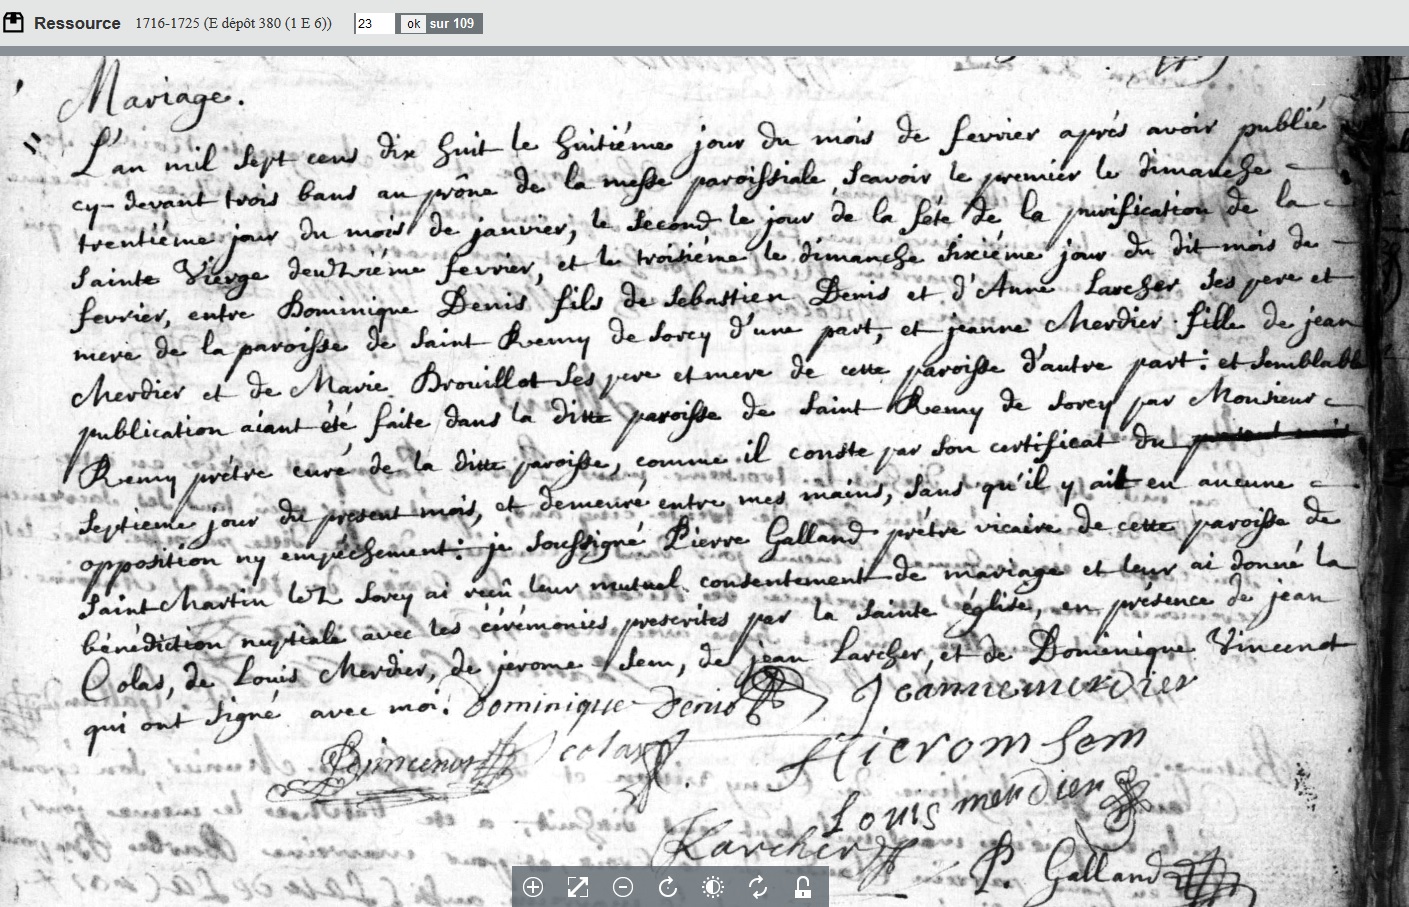 Ressource 1716-1725 (E dépôt 380 (1 E 6)) 23 ok sur 109
Mariage.
L'an mil sept cens dix huit le huitiéme jour du mois de fevrier aprés avoir publié
cy-devant trois bans au prône de la messe paroissiale, scavoir le premier le dimanche
trentiéme jour du mois de janvier, le second le jour de la féte de la purification de la
sainte Vierge deuxiéme fevrier, et le troisiéme le dimanche sixiéme jour du dit mois de
fevrier, entre Dominique Denis fils de Sebastien Denis et d'Anne Larcher ses pere et
mere de la paroisse de Saint Remy de Sorcy d'une part, et jeanne Merdier fille de jean
Merdier et de Marie Brouillot ses pere et mere de cette paroisse d'autre part: et semblable
publication aiant été faite dans la ditte paroisse de Saint Remy de Sorcy par Monsieur
Remy prétre curé de la ditte paroisse, comme il conste par son certificat du present mois
septieme jour du present mois, et demeuré entre mes mains, sans qu'il y ait eu aucune
opposition ny empéchement: je soussigné Pierre Galland prétre vicaire de cette paroisse de
Saint Martin lez Sorcy ai reçû leur mutuel consentement de mariage et leur ai donné la
bénédiction nuptiale avec les cérémonies prescrites par la sainte église, en présence de jean
Colas, de Louis Merdier, de jerome Sem, de jean Larcher, et de Dominique Vincenot
qui ont signé avec moi. Dominique Denis Jeanne merdier
D vincenot colas Hierom Sem
Louis merdier
Larcher P. Galland